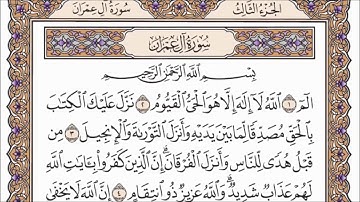 سُورَةُ آلِ عِمْرَان
الجُزْءُ الثَّالِثُ
سُورَةُ آلِ عِمْرَانَ
بِسْمِ ٱللَّهِ ٱلرَّحْمَٰنِ ٱلرَّحِيمِ
الٓمٓ ١ ٱللَّهُ لَآ إِلَٰهَ إِلَّا هُوَ ٱلْحَىُّ ٱلْقَيُّومُ ٢ نَزَّلَ عَلَيْكَ ٱلْكِتَٰبَ
بِٱلْحَقِّ مُصَدِّقًا لِّمَا بَيْنَ يَدَيْهِ وَأَنزَلَ ٱلتَّوْرَىٰةَ وَٱلْإِنجِيلَ ٣ مِن
قَبْلُ هُدًى لِّلنَّاسِ وَأَنزَلَ ٱلْفُرْقَانَ إِنَّ ٱلَّذِينَ كَفَرُوا۟ بِـَٔايَٰتِ ٱللَّهِ
لَهُمْ عَذَابٌ شَدِيدٌ وَٱللَّهُ عَزِيزٌ ذُو ٱنتِقَامٍ ٤ إِنَّ ٱللَّهَ لَا يَخْفَىٰ